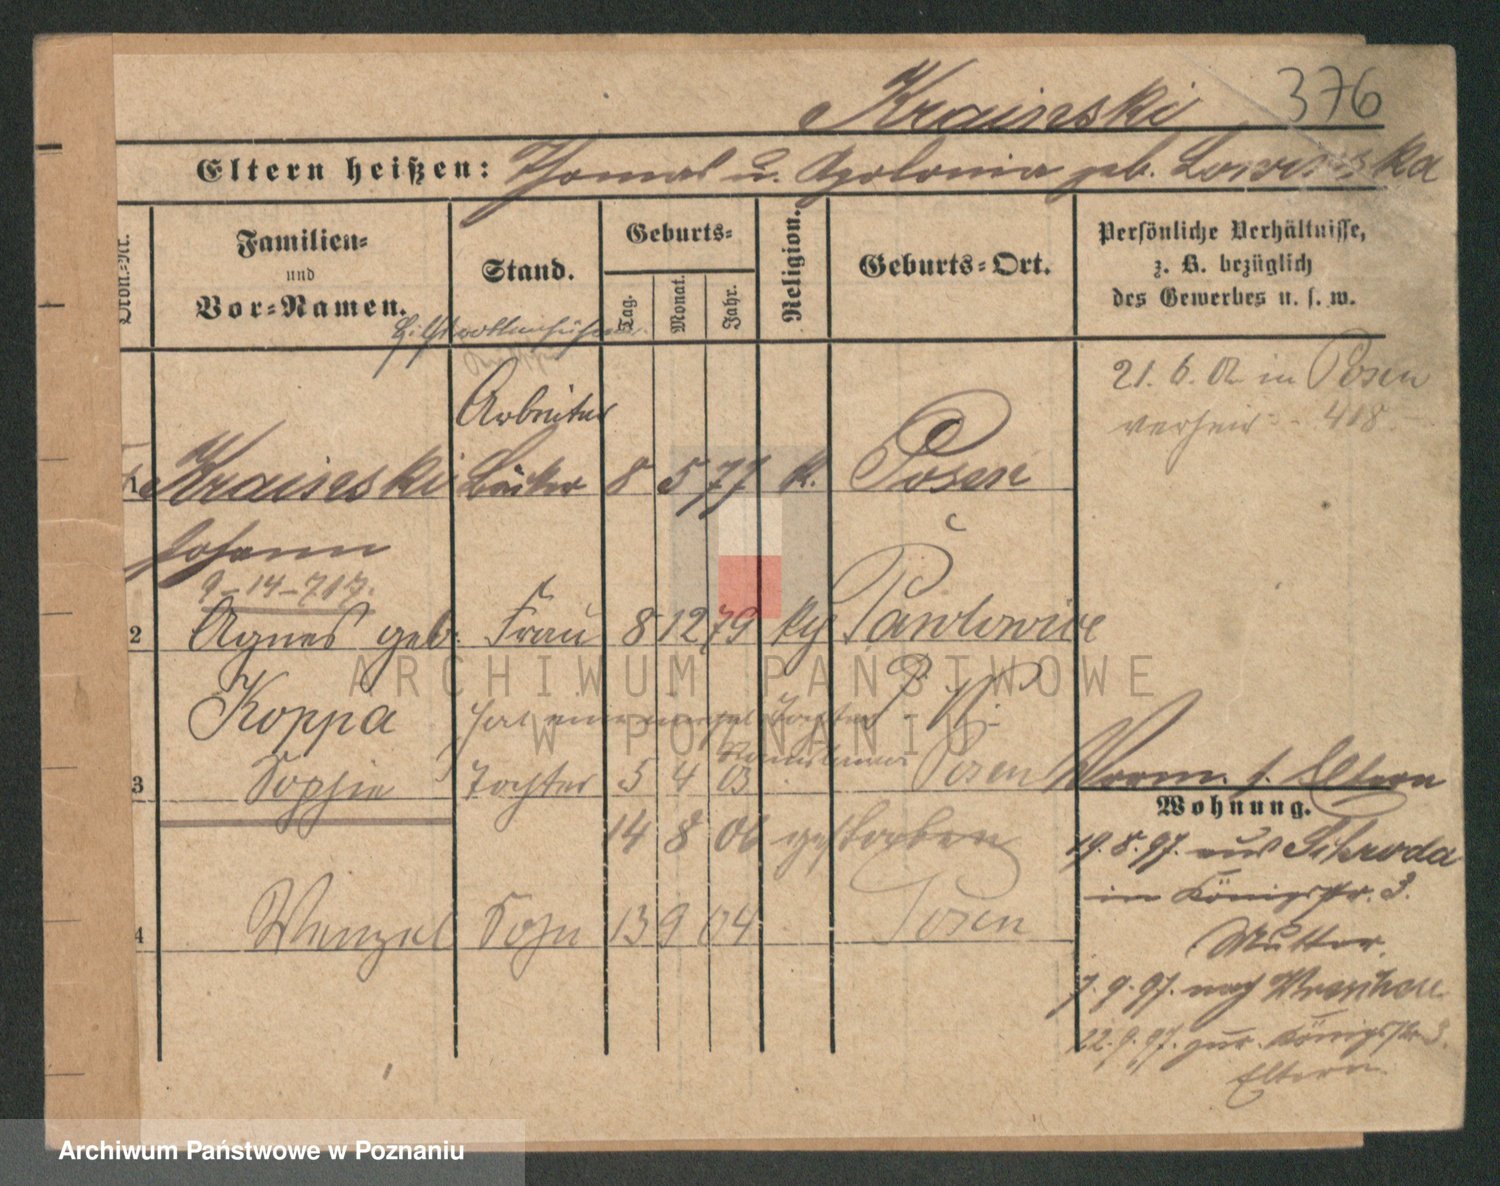 Kraiseski 376
Eltern heißen: Thomas u. Apolonia geb.
Familien=
und
Vor=Namen.
Stand.
Geburts=
Tag.
Monat.
Jahr.
Religion.
Geburts=Ort.
Persönliche Verhältnisse,
z. B. bezüglich
des Gewerbes u. s. w.
21. 6. 02 in Posen
verheir. 418.
Arbeiter
1 Kraiseski Bäcker 8 5 77 k. Posen
Johann
9-14-717.
2 Agnes geb. Frau 8 12 79 kg Pawlowice
Koppa hat eine Tochter
3 Sophie Tochter 5 4 03 Posen Worm. s. Eltern
Wohnung.
14 8 06 gestorben
19. 8. 97. aus Schroda
in Königstr. 3.
4 Wenzel Sohn 13 9 04 Posen
Mutter.
7. 9. 97. nach Wreschen
22. 9. 97. zur. Königstr 3.
Eltern.
ARCHIWUM PAŃSTWOWE
W POZNANIU
Archiwum Państwowe w Poznaniu